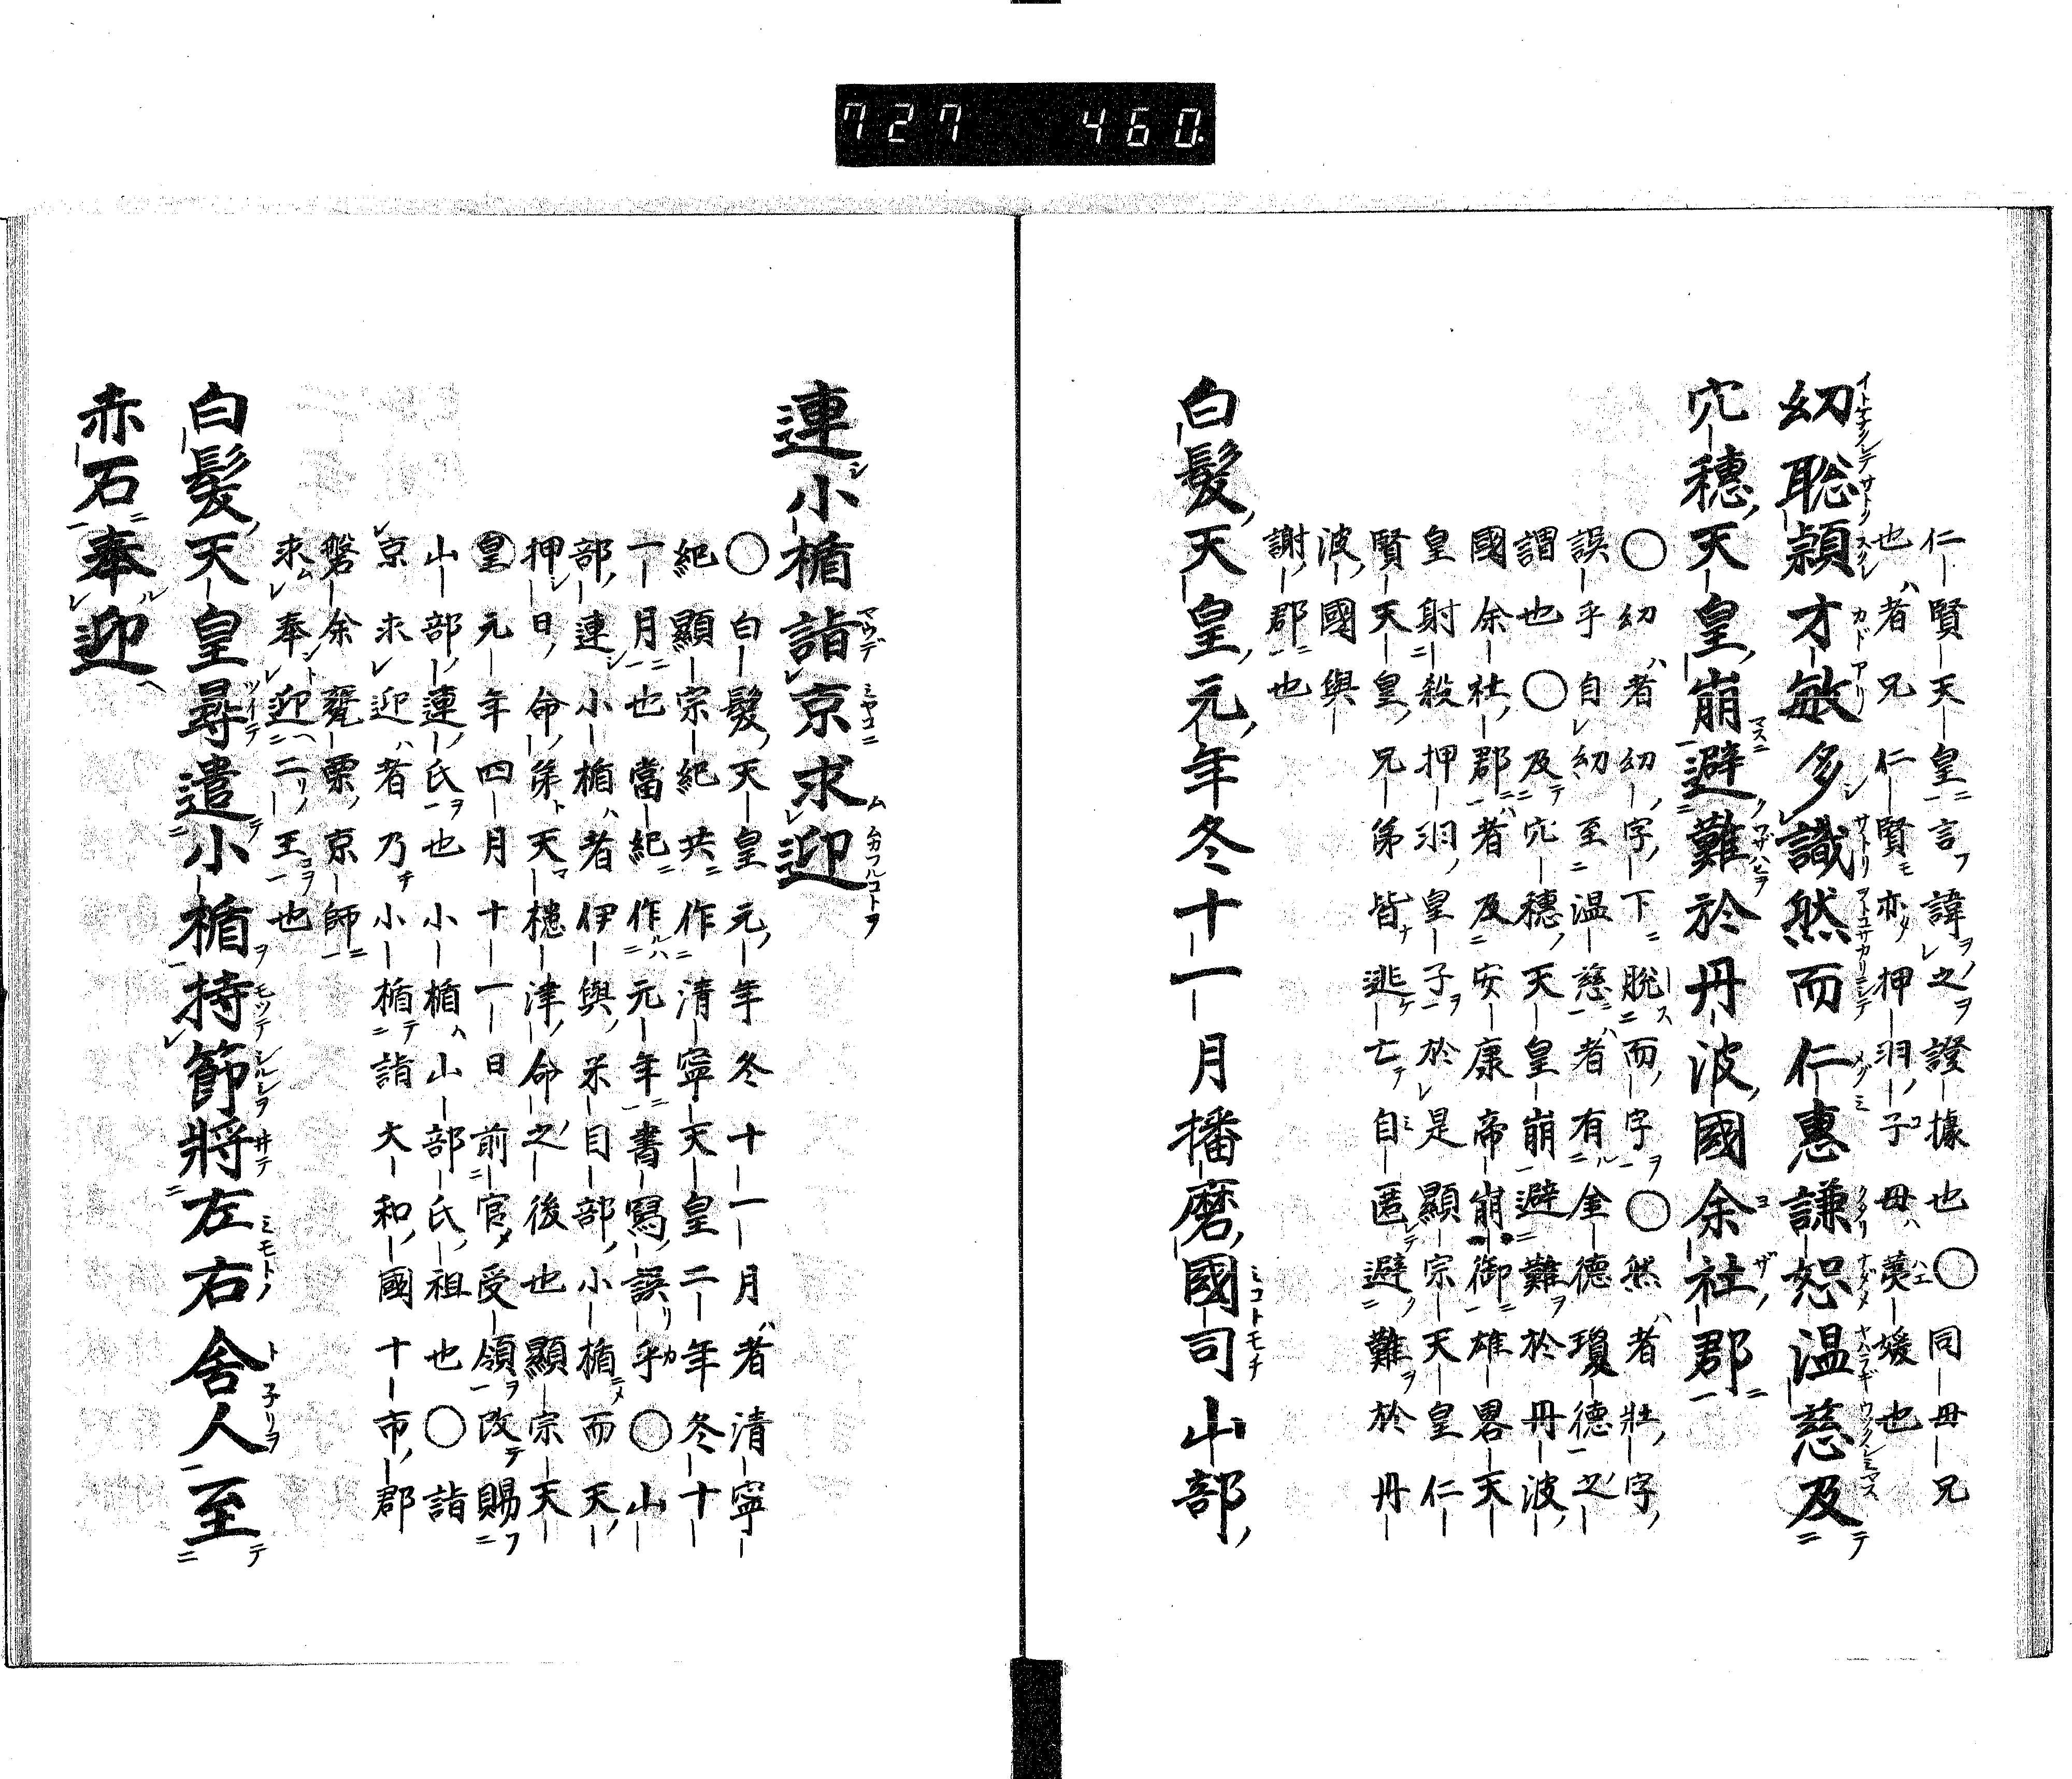 727 460
仁賢天皇言諱之證據也〇同母兄
也者兄仁賢亦押羽子母荑媛也
幼聡頴才敏多識然而仁惠謙恕温慈及
穴穗天皇崩避難於丹波國余社郡
〇幼者幼字下脱而字〇然者壯字
誤乎自幼至温慈者有金德瓊德之
謂也〇及穴穗天皇崩避難於丹波
國余社郡者及安康帝崩御雄畧天
皇射殺押羽皇子於是顯宗天皇仁
賢天皇兄弟皆逃亡自匿避難於丹
波國與
謝郡也
白髮天皇元年冬十一月播磨國司山部
連小楯詣京求迎
〇白髮天皇元年冬十一月者清寧
紀顯宗紀共作清寧天皇二年冬十
一月也當紀作元年書寫誤乎〇山
部連小楯者伊與米目部小楯而天
押日命第天穂津命之後也顯宗天
皇元年四月十一日前官受領改賜
山部連氏也小楯山部氏祖也〇詣
京求迎者乃小楯詣大和國十市郡
磐余甕栗京師
求奉迎二王也
白髮天皇尋遣小楯持節將左右舍人至
赤石奉迎